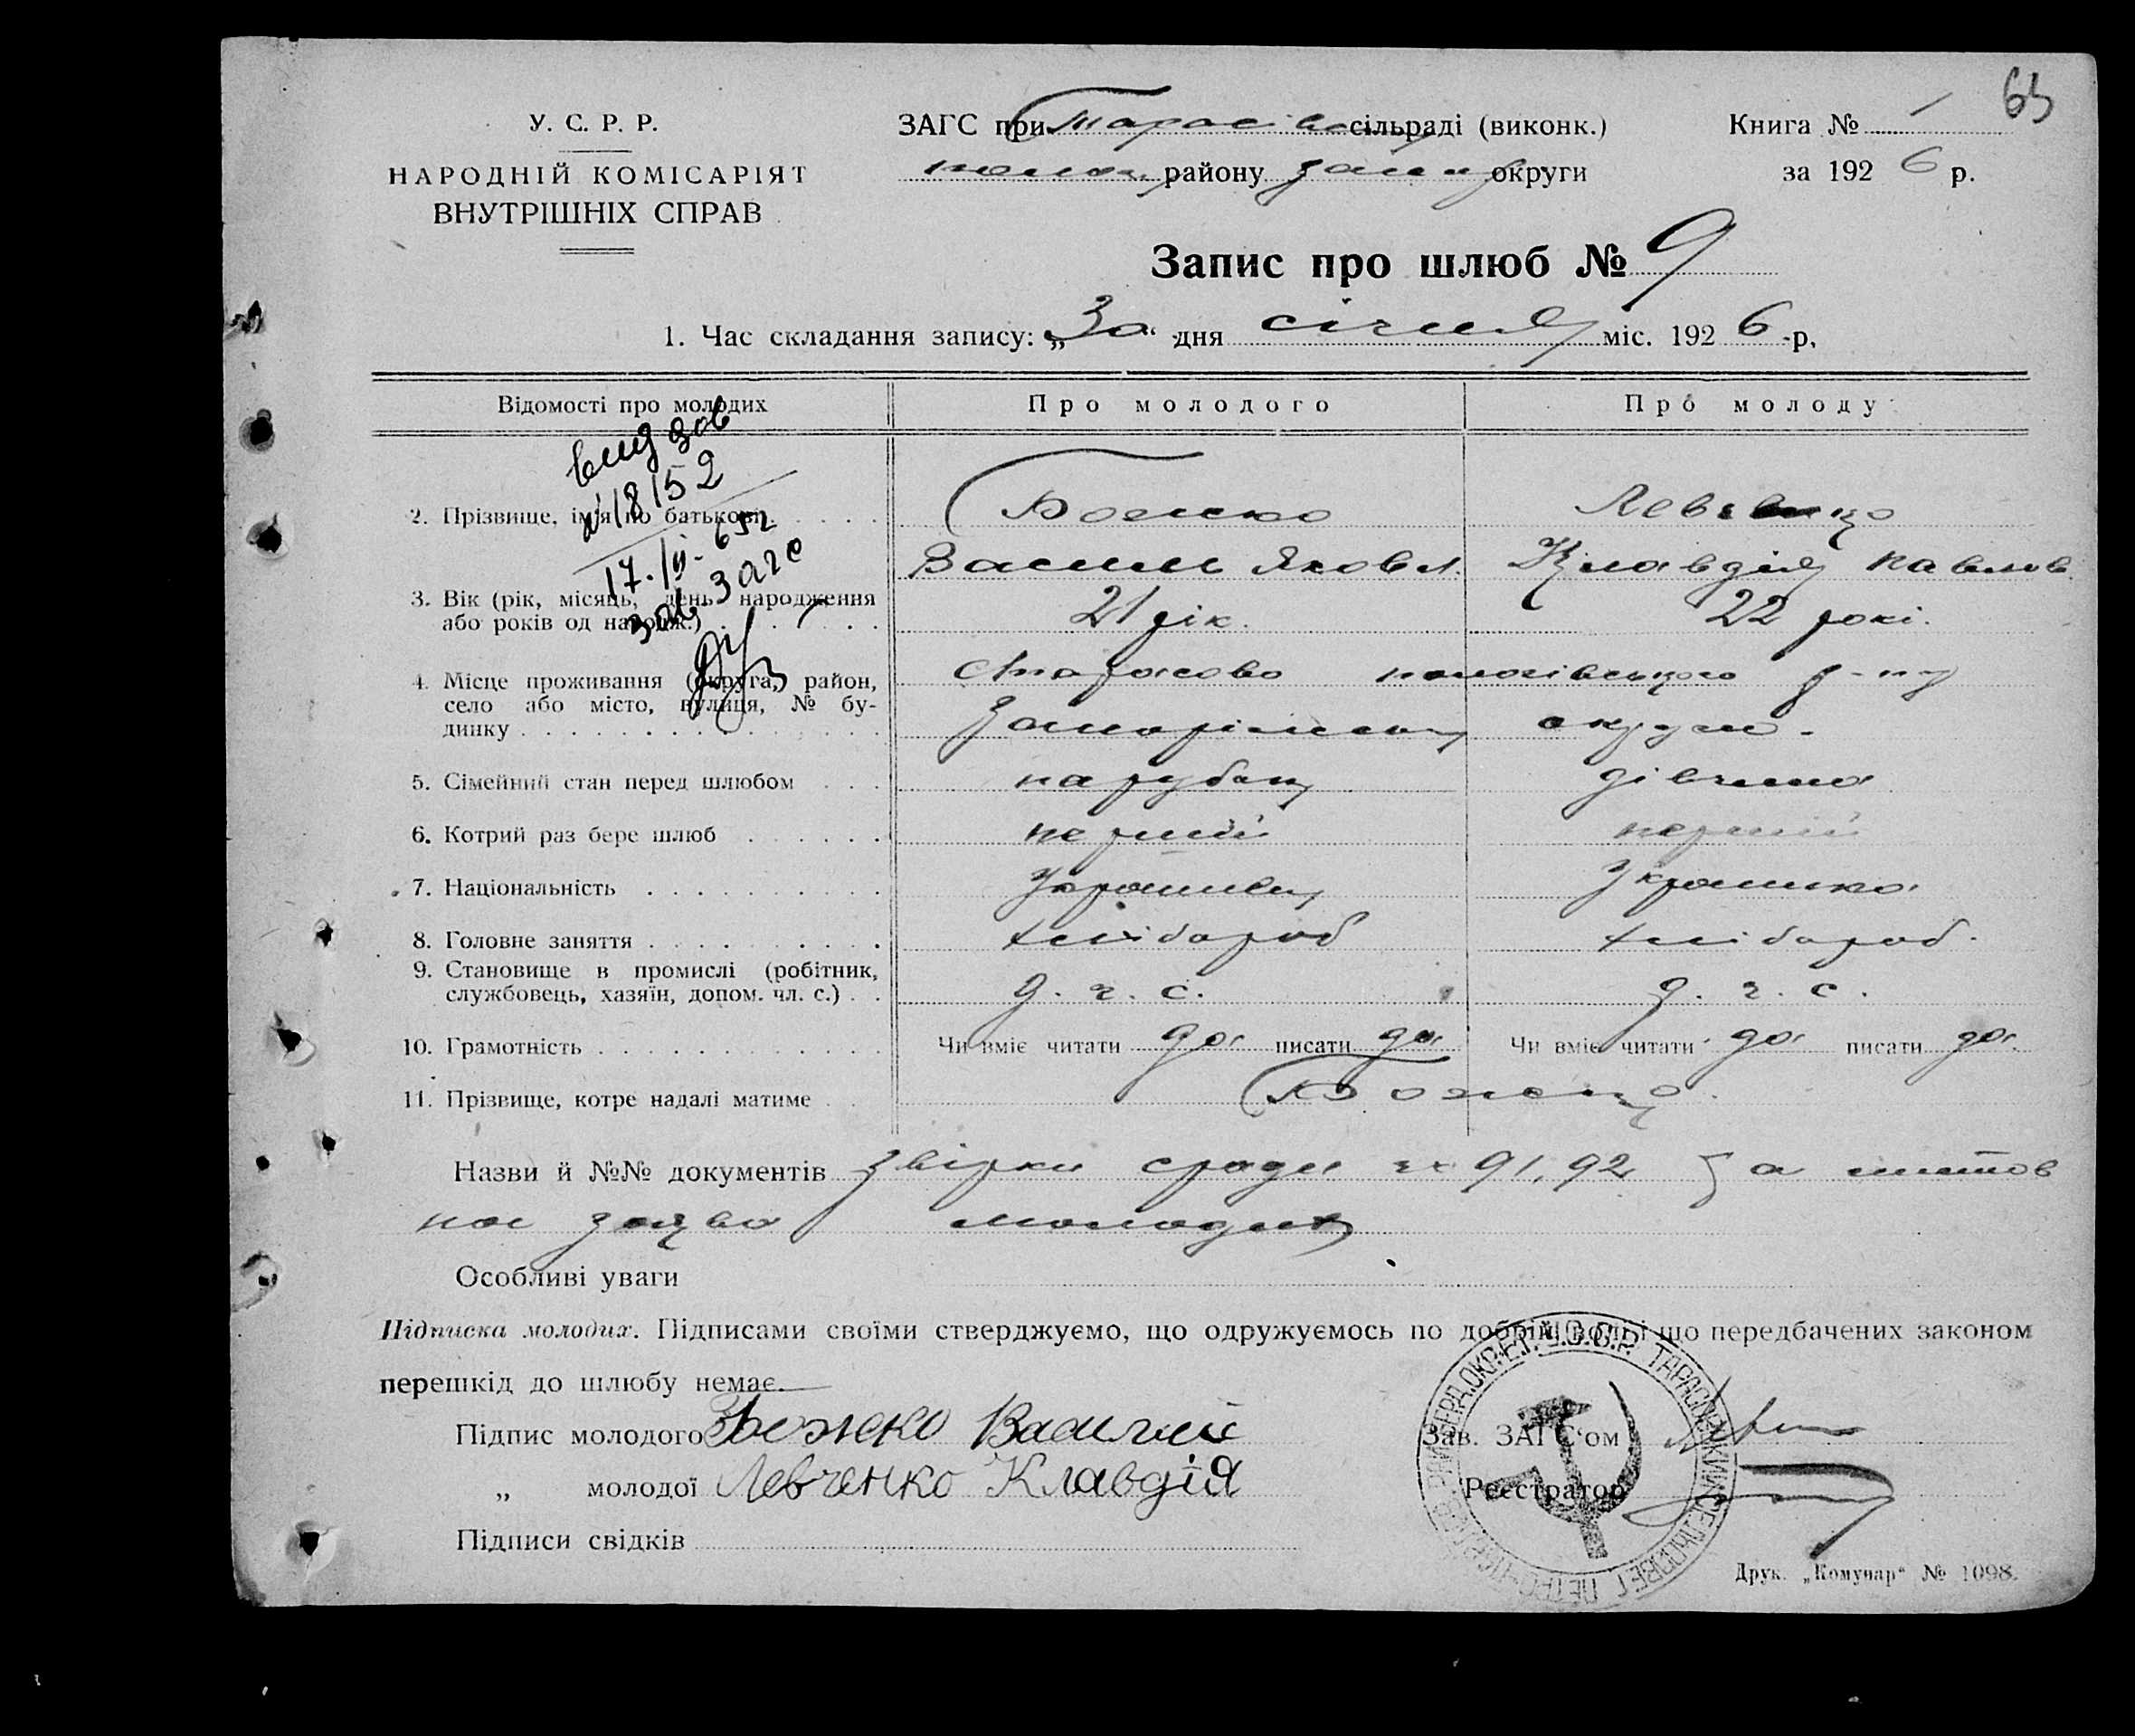 63
У. С. Р. Р.
НАРОДНІЙ КОМІСАРІЯТ
ВНУТРІШНІХ СПРАВ
ЗАГС при Тарасівс сільраді (виконк.)
району округи
Книга № 1
за 1926 р.
Запис про шлюб № 9
1. Час складання запису: „30“ дня січня міс. 1926-р,
Відомості про молодих
Про молодого
Про молоду
2. Прізвище, ім'я по батькові
Божко
Василь Яковл.
Левченко
Клавдія Павлов.
№ 18152
17.
зав Загс
3. Вік (рік, місяць, день народження
або років од народж.)
21 рік.
22 рокі.
4. Місце проживання (округа, район,
село або місто, вулиця, № бу-
динку
с Тарасово пологівського р-ну
Запоріжськ округи.
5. Сімейний стан перед шлюбом
парубок
дівчина
6. Котрий раз бере шлюб
перший
перший
7. Національність
Українець
Українка
8. Головне заняття
хлібороб
хлібороб.
9. Становище в промислі (робітник,
службовець, хазяїн, допом. чл. с.)
д. ч. с.
д. ч. с.
10. Грамотність
Чи вміє читати да писати да
Чи вміє читати да писати да.
11. Прізвище, котре надалі матиме
Божко.
Назви й №№ документів 91, 92
заява молодих
Особливі уваги
Підписка молодих. Підписами своїми стверджуємо, що одружуємось по добрій волі і що передбачених законом
перешкід до шлюбу немає.
Підпис молодого Божко Василий
„ молодої Левченко Клавдія
Підписи свідків
Зав. ЗАГС‘ом
Реєстратор
Друк. „Комунар“ № 1098.